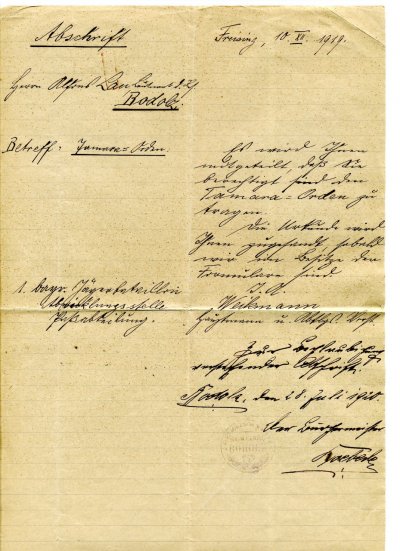 Abschrift
Freising, 10. XII. 1919.
Herrn Alfons Lau Leutnant d. R.
Bodolz.
Betreff: Tamara=Orden.
Es wird Ihnen
mitgeteilt, daß Sie
berechtigt sind den
Tamara=Orden zu
tragen.
Die Urkunde wird
Ihnen zugesandt, sobald
wir im Besitze der
Formulare sind.
1. Bayr. Jägerbataillon
Abwicklungsstelle
Paßabteilung.
I. A.
Weikmann
Hauptmann u. Abtlgs. Vorst.
Zur Beglaubigung
vorstehender Abschrift.
Bodolz, den 28. Juli 1920
Der Bürgermeister